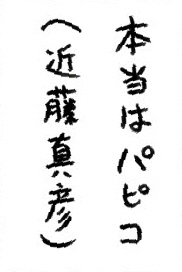 本当はパピコ
（近藤真彦）